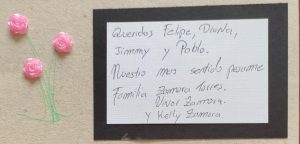 Queridos Felipe, Diana,
Jimmy y Pablo.
Nuestro mas sentido pesame
Familia Zamora Torres.
Zamora.
y Kelly Zamora